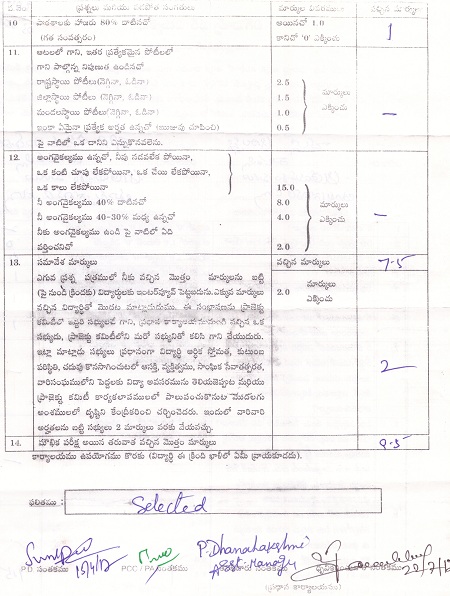 10 పాఠశాలకు హాజరు 80% దాటినచో అయినచో 1.0 1
(గత సంవత్సరం) కానిచో '0' ఎక్కించు
11. ఆటలలో గాని, ఇతర ప్రత్యేకమైన పోటీలలో
గాని పాల్గొన్న నిపుణత ఉండినచో
రాష్ట్రస్థాయి పోటీలు(నెగ్గినా, ఓడినా) 2.5
జిల్లాస్థాయి పోటీలు (నెగ్గినా, ఓడినా) 1.5 మార్కులు
మండలస్థాయి పోటీలు(నెగ్గినా, ఓడినా) 1.0 ఎక్కించు —
ఇంకా ఏమైనా ప్రత్యేక అర్హత ఉన్నచో 0.5
పై వాటిలో ఒక దానిని ఎన్నుకొనవలెను.
12. అంగవైకల్యము ఉన్నచో, నీవు నడవలేక పోయినా,
ఒక కంటి చూపు లేకపోయినా, ఒక చేయి లేకపోయినా
ఒక కాలు లేకపోయినా 15.0
నీ అంగవైకల్యము 40% దాటినచో 8.0 మార్కులు
నీ అంగవైకల్యము 40-30% మధ్య ఉన్నచో 4.0 ఎక్కించు –
నీకు అంగవైకల్యము ఉండి పై వాటిలో ఏది
వర్తించనిచో 2.0
13. సమావేశ మార్కులు వచ్చిన మార్కులు 7-5
ఎగువ ప్రశ్న పత్రములో నీకు వచ్చిన మొత్తం మార్కులను బట్టి
(పై నుండి క్రిందకు) విద్యార్థులకు ఇంటర్వ్యూకి పెట్టబడును.ఎక్కువ మార్కులు 2.0 మార్కులు
వచ్చిన విద్యార్థితో మొదట మాట్లాడుదుము. ఈ సంభాషణను ప్రాజెక్టు ఎక్కించు
కమిటీలో ఇద్దరి సభ్యులచే గాని, ప్రధాన కార్యాలయమునుండి వచ్చిన ఒక
సభ్యుడు, ప్రాజెక్టు కమిటీలోని మరో సభ్యునితో కలిసి గాని చేయుదురు.
ఇట్లా మాట్లాడు సభ్యులు ప్రధానంగా విద్యార్థి ఆర్థిక స్తోమత, కుటుంబ 2
పరిస్థితి, చదువు కొనసాగించుటలో ఆసక్తి, వ్యక్తిత్వము, సాంఘిక సేవాతత్పరత,
వారిసంఘములోని పెద్దలకు విద్యా అవసరమును తెలియజెప్పుట మరియు
ప్రాజెక్టు కమిటీ కార్యకలాపములలో పాలుపంచుకొనుట మొదలగు
అంశములలో దృష్టిని కేంద్రీకరించి చర్చించెదరు. ఇందులో వారివారి
అర్హతలను బట్టి సభ్యులు 2 మార్కులు వరకు వేయవచ్చు.
14. మౌఖిక పరీక్ష అయిన తరువాత వచ్చిన మొత్తం మార్కులు 9-5
కార్యాలయము ఉపయోగము కొరకు (విద్యార్థి ఈ క్రింది ఖాళీలో ఏమీ వ్రాయకూడదు).
ఫలితము : Selected
P. Dhanalakshmi
15/4/12 Asst. Manager
P.D. సంతకము PCC / PA సంతకము సంతకము
(ప్రధాన కార్యాలయం)